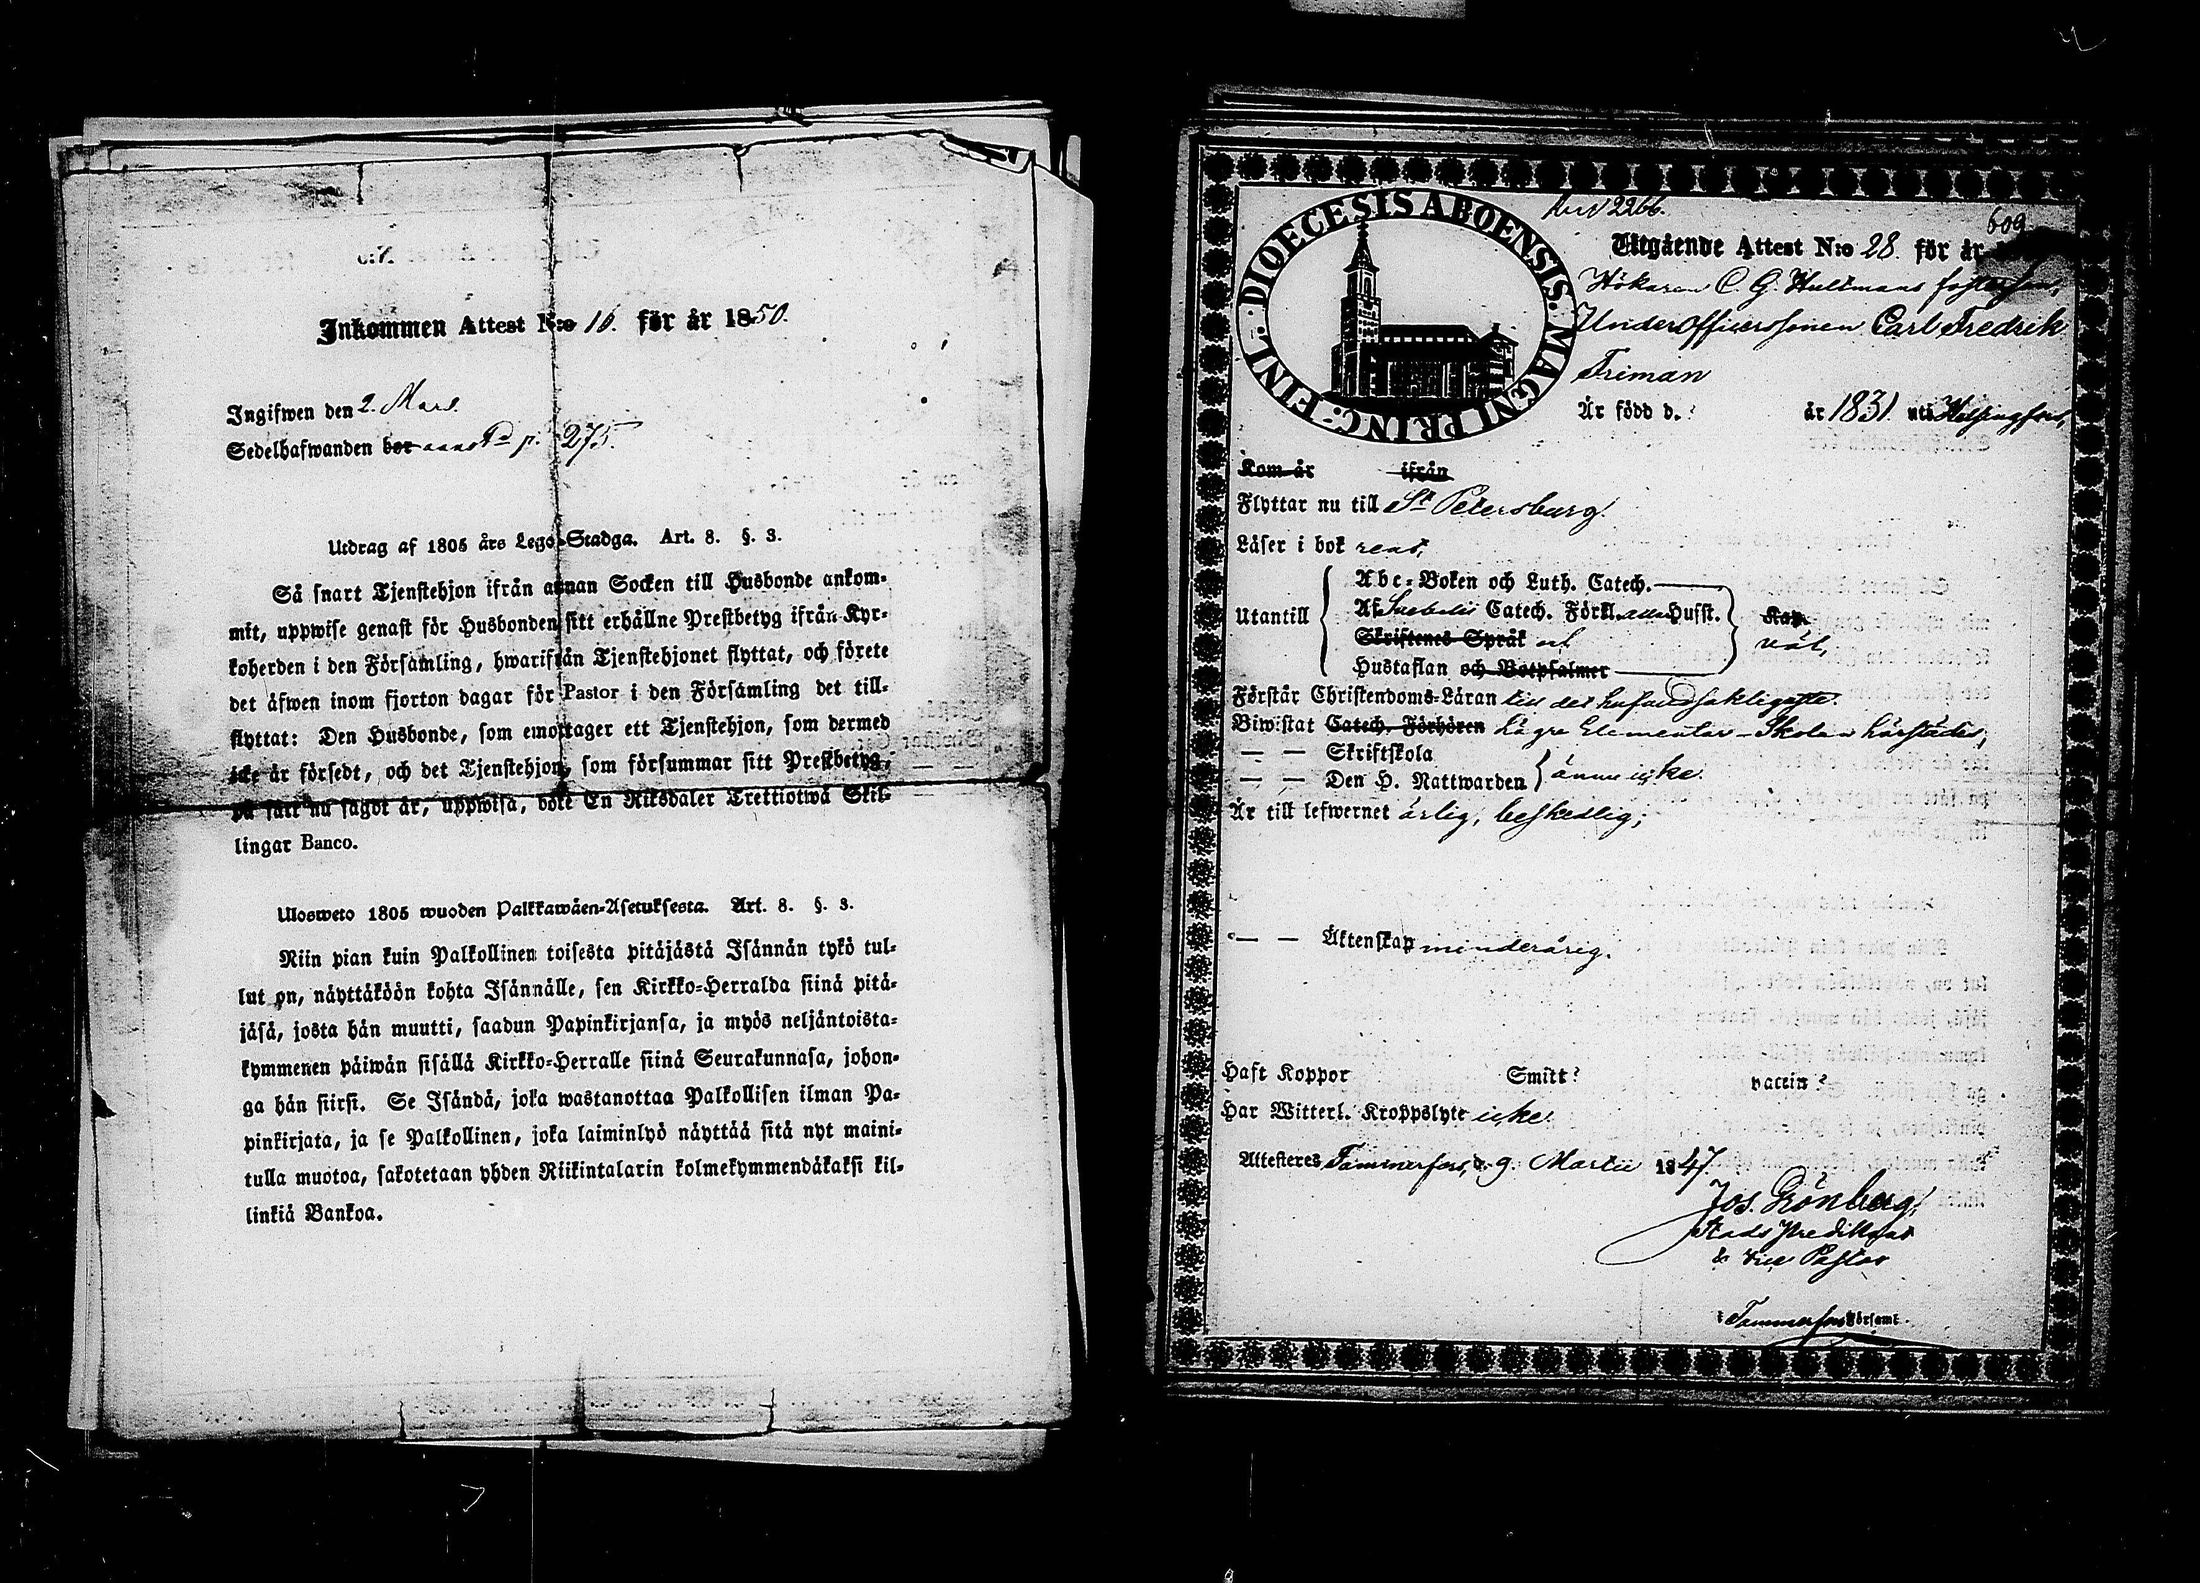 Inkommen Attest N:o 16. för år 1850.
Ingifwen den 2. Mars.
Sedelhafwanden bor p. 275.
Utdrag af 1805 års Lego-Stadga. Art. 8. §. 3.
Så snart Tjenstehjon ifrån annan Socken till Husbonde ankom-
mit, uppwise genast för Husbonden sitt erhållne Prestbetyg ifrån Kyr-
koherden i den Församling, hwarifrån Tjenstehjonet flyttat, och förete
det äfwen inom fjorton dagar för Pastor i den Församling det till-
flyttat: Den Husbonde, som emottager ett Tjenstehjon, som dermed
icke är försedt, och det Tjenstehjon, som försummar sitt Prestbetyg,
på sätt nu sagdt är, uppwisa, böte En Riksdaler Trettiotwå Skil-
lingar Banco.
Ulosweto 1805 wuoden Palkkawäen-Asetuksesta. Art. 8. §. 3.
Niin pian kuin Palkollinen toisesta pitäjästä Isännän tykö tul-
lut on, näyttäköön kohta Isännälle, sen Kirkko-Herralda siinä pitä-
jäsä, josta hän muutti, saadun Papinkirjansa, ja myös neljäntoista-
kymmenen päiwän sisällä Kirkko-Herralle siinä Seurakunnasa, johon-
ga hän siirsi. Se Isändä, joka wastanottaa Palkollisen ilman Pa-
pinkirjata, ja se Palkollinen, joka laiminlyö näyttää sitä nyt maini-
tulla muotoa, sakotetaan yhden Riikintalarin kolmekymmendäkaksi kil-
linkiä Bankoa.
DIOECESIS ABOENSIS. MAGNI PRINC: FINL.
2266.
609
Utgående Attest N:o 28. för år
Hökaren C. G. Hultmans fosterson,
Underofficerssonen Carl Fredrik
Friman
Är född d.? år 1831. uti Helsingfors,
Kom år ifrån
Flyttar nu till St Petersburg.
Läser i bok rent,
Utantill
Abc-Boken och Luth. Catech.
Af Svebelii Catech. Förkl. Husst. Kap.
Skriftenes Språk och väl,
Hustaflan och Botpsalmer
Förstår Christendoms-Läran till det hufvudsakligaste.
Biwistat Catech. Förhören Lägre Elementar-Skolan härstädes,
— — Skriftskola
— — Den H. Nattwarden ännu icke.
Är till lefwernet ärlig, beskedlig;
— — Äktenskap minderårig.
Haft Koppor Smitt? vaccin?
Har Witterl. Kroppslyte icke.
Attesteres Tammerfors, d. 9. Martii 1847.
Jos. Grönberg,
StadsPredikant
& vice Pastor
i Tammerfors Församl.